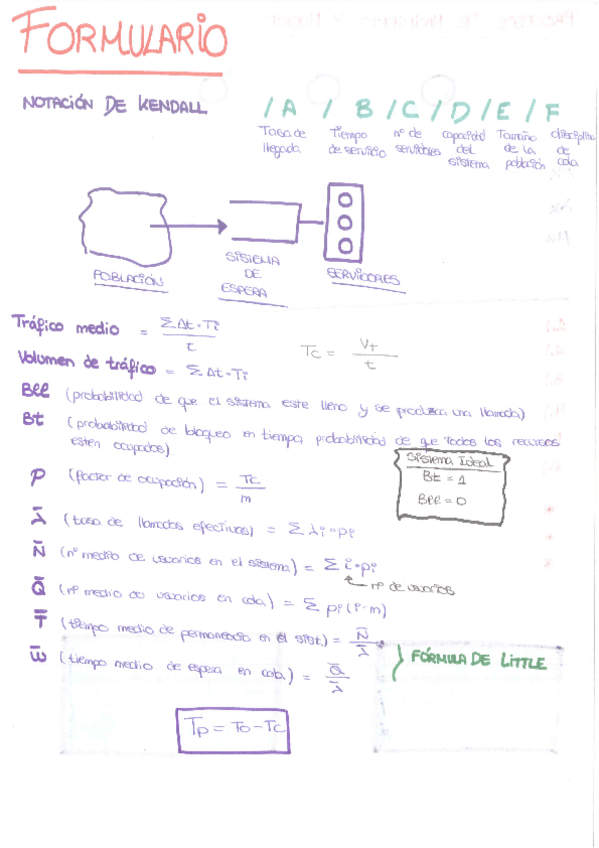 FORMULARIO
NOTACIÓN DE KENDALL
/ A / B / C / D / E / F
Tasa de llegada
Tiempo de servicio
nº de servidores
capacidad del sistema
Tamaño de la población
disciplina de cola
POBLACIÓN
SISTEMA DE ESPERA
SERVIDORES
Tráfico medio = ΣΔt·Ti / t
Tc = Vt / t
Volumen de tráfico = ΣΔt·Ti
Bll (probabilidad de que el sistema este lleno y se produzca una llamada)
Bt (probabilidad de bloqueo en tiempo, probabilidad de que todos los recursos
esten ocupados)
Sistema Ideal
Bt = 1
Bll = 0
P (factor de ocupación) = Tc / m
λ̄ (tasa de llamadas efectivas) = Σ λi·pi
N̄ (nº medio de usuarios en el sistema) = Σ i·pi
nº de usuarios
Q̄ (nº medio de usuarios en cola) = Σ pi (i-m)
T̄ (tiempo medio de permanencia en el sist.) = N̄ / λ̄
W̄ (tiempo medio de espera en cola) = Q̄ / λ̄
FÓRMULA DE LITTLE
Tp = To - Tc